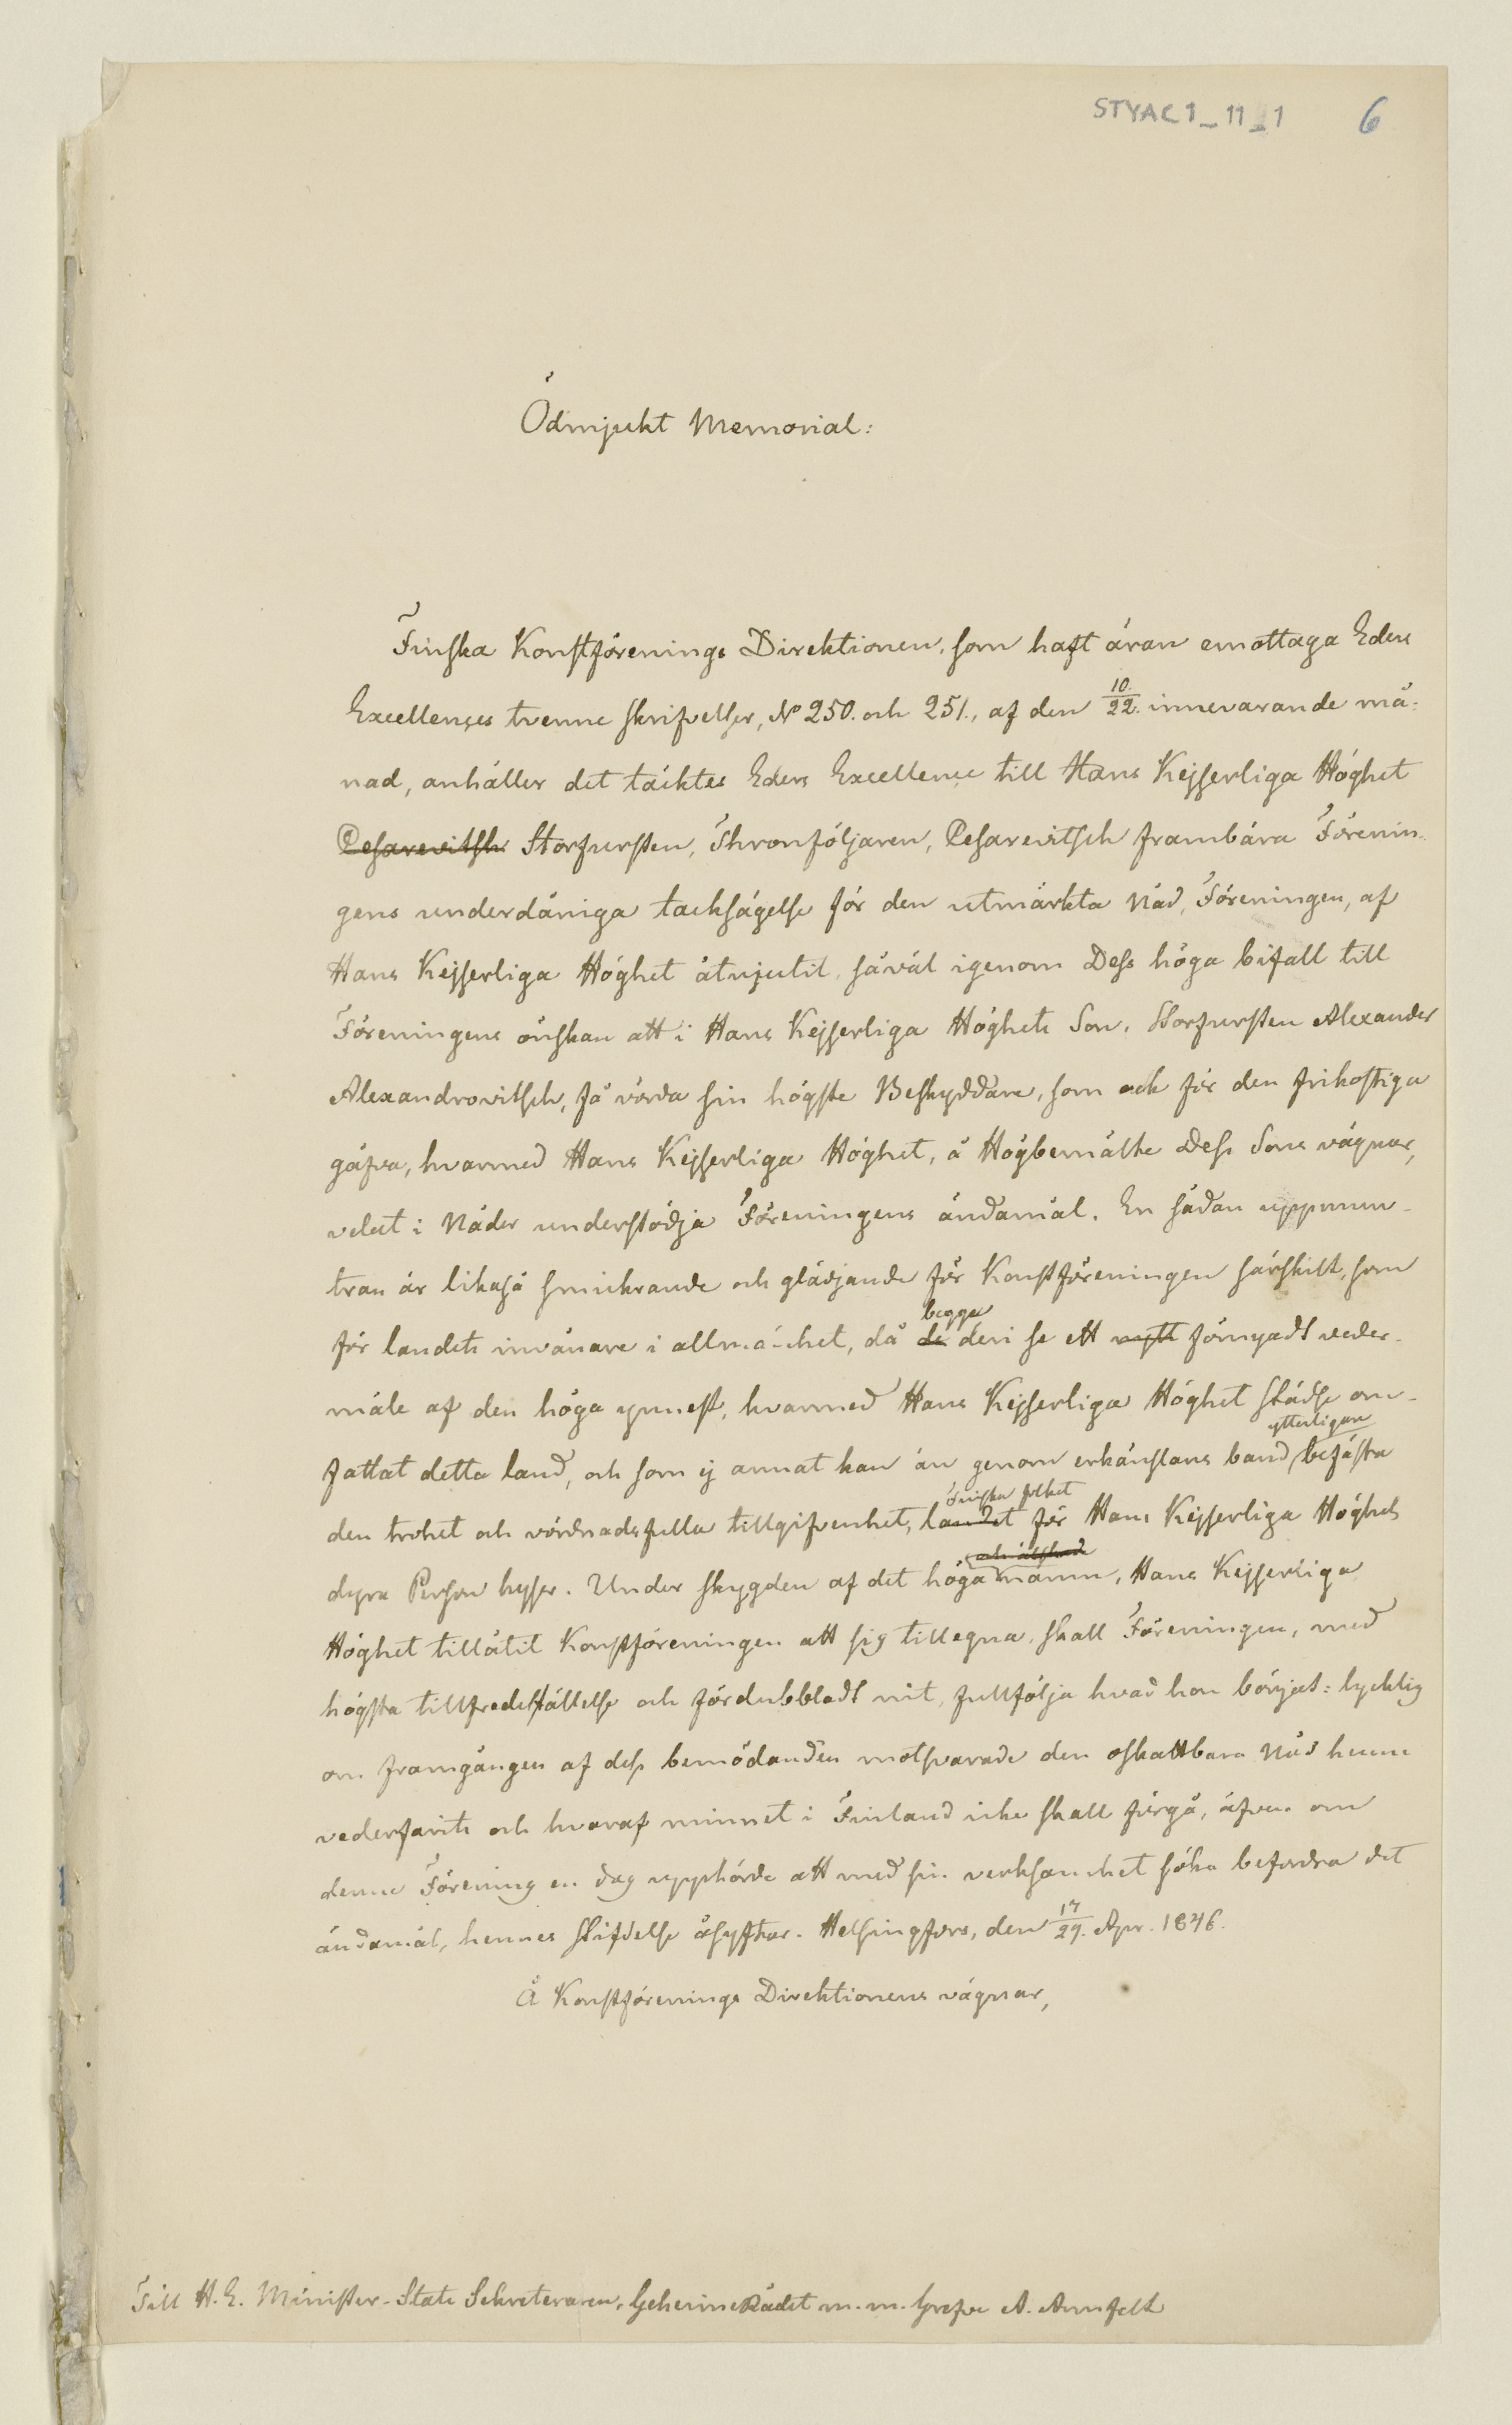 STYAC1_11_1 6
Ödmjukt Memorial:
Finska Konstförenings Direktionen, som haft äran emottaga Eders
Excellences tvenne skrifvelser, No 250. och 251., af den 10./22. innevarande må-
nad, anhåller det täcktes Eders Excellence till Hans Kejserliga Höghet
Cesarewitsch Storfursten, Thronföljaren, Cesarewitsch frambära Förenin-
gens underdåniga tacksägelse för den utmärkta Nåd, Föreningen, af
Hans Kejserliga Höghet åtnjutit, såväl igenom Dess höga bifall till
Föreningens önskan att i Hans Kejserliga Höghets Son, Storfursten Alexander
Alexandrovitsch, få vörda sin högste Beskyddare, som ock för den frikostiga
gåfva, hvarmed Hans Kejserliga Höghet, å Högbemälte Dess Sons vägnar,
velat i Nåder understödja Föreningens ändamål. En sådan uppmun-
tran är likaså smickrande och glädjande för Konstföreningen särskilt, som
för landets invånare i allmänhet, då de begge deri se ett nytt förnyadt veder-
mäle af den höga ynnest, hvarmed Hans Kejserliga Höghet städse om-
fattat detta land, och som ej annat kan än genom erkänslans band ytterligare befästa
den trohet och vördnadsfulla tillgifvenhet, landet Finska folket för Hans Kejserliga Höghets
dyra Person hyser. Under skygden af det höga och älskade namn, Hans Kejserliga
Höghet tillåtit Konstföreningen att sig tillegna, skall Föreningen, med
högsta tillfredsställelse och fördubbladt nit, fullfölja hvad hon börjat: lycklig
om framgången af dess bemödanden motsvarade den oskattbara Nåd henne
vederfarits och hvaraf minnet i Finland icke skall förgå, äfven om
denna Förening en dag upphörde att med sin verksamhet söka befordra det
ändamål, hennes stiftelse åsyftar. Helsingfors, den 17/29. Apr. 1846.
Å Konstförenings Direktionens vägnar,
Till H. E. Minister-Stats Sekreteraren, GeheimeRådet m. m. Grefve A. Armfelt